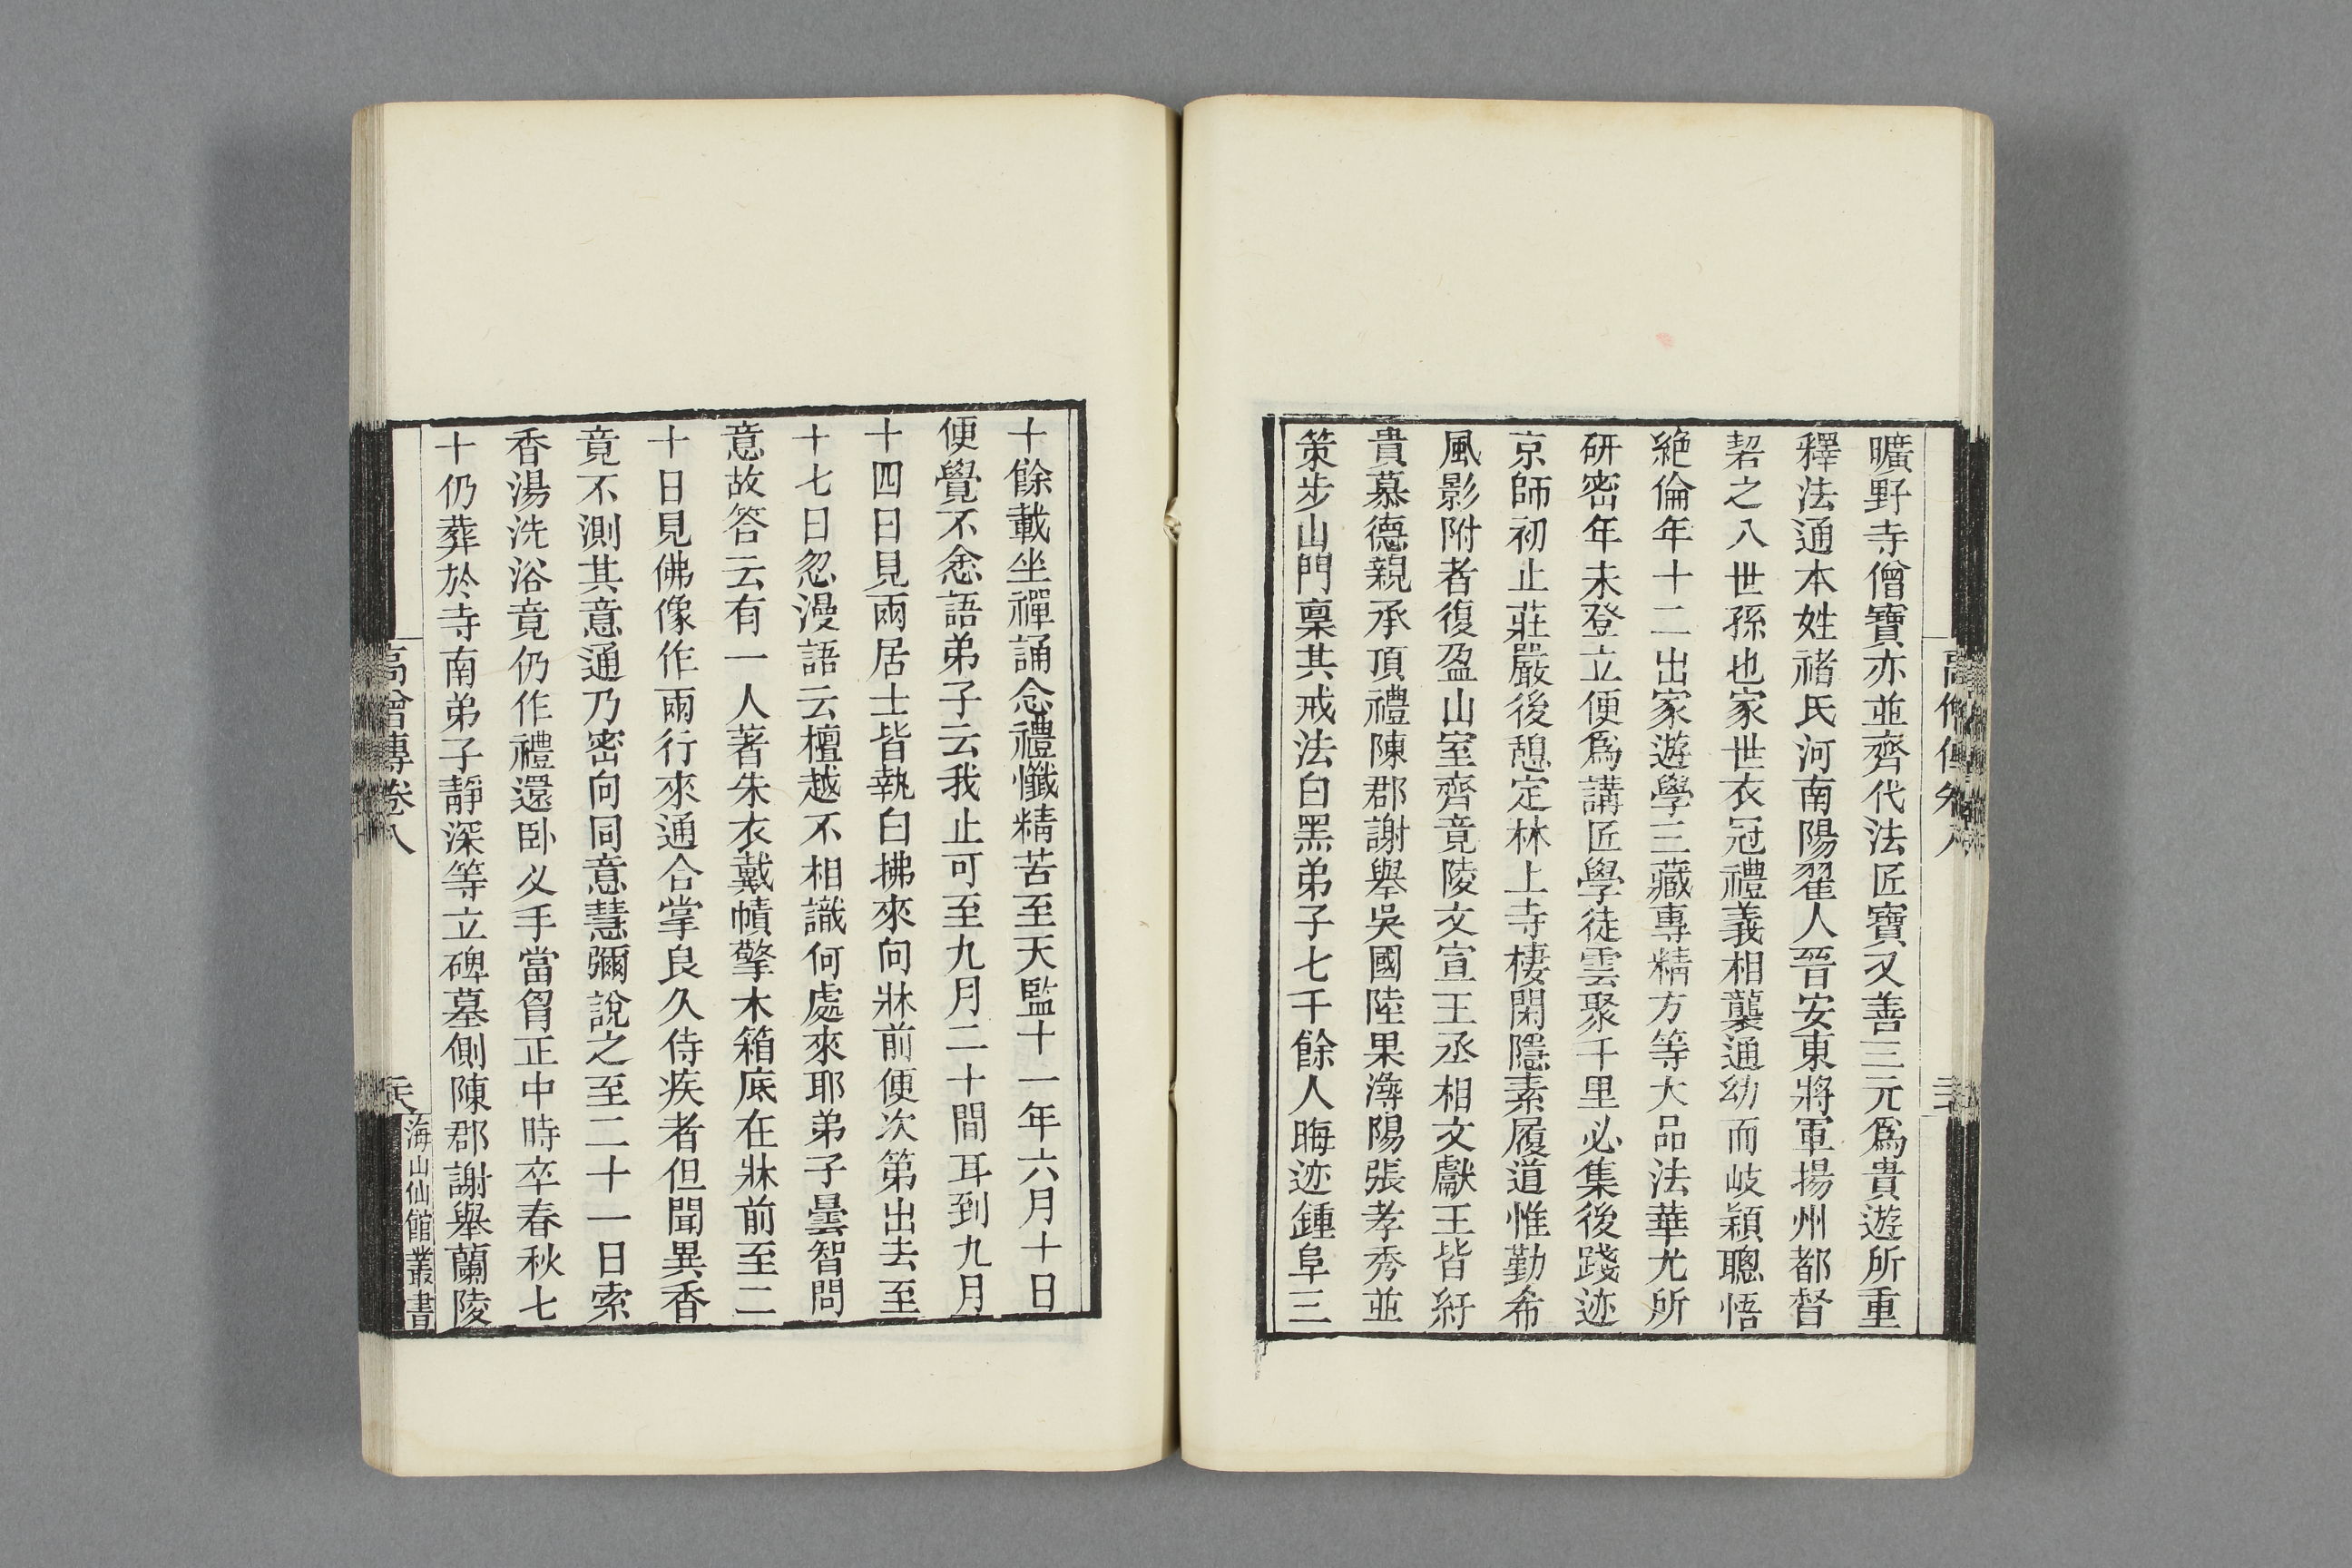 曠野寺僧寶亦並齊代法匠寶又善三元爲貴遊所重
釋法通本姓褚氏河南陽翟人晉安東將軍揚州都督
䂮之八世孫也家世衣冠禮義相襲通幼而岐穎聰悟
絶倫年十二出家遊學三藏專精方等大品法華尤所
研密年未登立便爲講匠學徒雲聚千里必集後踐迹
京師初止莊嚴後憩定林上寺棲閑隱素履道惟勤希
風影附者復盈山室齊竟陵文宣王丞相文獻王皆紆
貴慕德親承頂禮陳郡謝舉吳國陸果潯陽張孝秀並
策步山門稟其戒法白黑弟子七千餘人晦迹鍾阜三
十餘載坐禪誦念禮懺精苦至天監十一年六月十日
便覺不悆語弟子云我止可至九月二十間耳到九月
十四日見兩居士皆執白拂來向牀前便次第出去至
十七日忽漫語云檀越不相識何處來耶弟子曇智問
意故答云有一人著朱衣戴幘擎木箱底在牀前至二
十日見佛像作兩行來通合掌良久侍疾者但聞異香
竟不測其意通乃密向同意慧彌說之至二十一日索
香湯洗浴竟仍作禮還臥义手當胷正中時卒春秋七
十仍葬於寺南弟子靜深等立碑墓側陳郡謝舉蘭陵
高僧傳卷八
海山仙館叢書